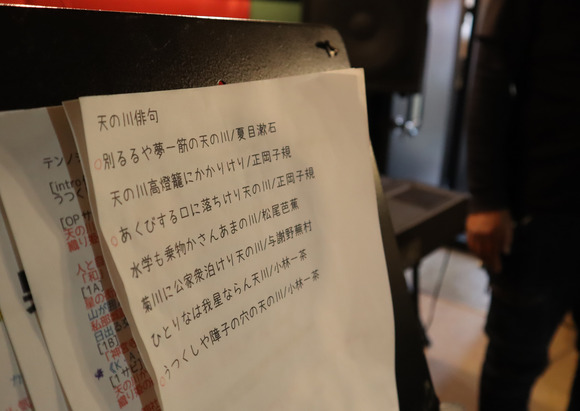 天の川俳句
別るるや夢一筋の天の川/夏目漱石
天の川高燈籠にかかりけり/正岡子規
あくびする口に落ちけり天の川/正岡子規
水学も乗物かさんあまの川/松尾芭蕉
菊川に公家衆泊けり天の川/与謝野蕪村
ひとりなは我星ならん天川/小林一茶
うつくしや障子の穴の天の川/小林一茶
テン
[intro
うつく
[OP サ
天の
[1A]
[1B]
[1サビ